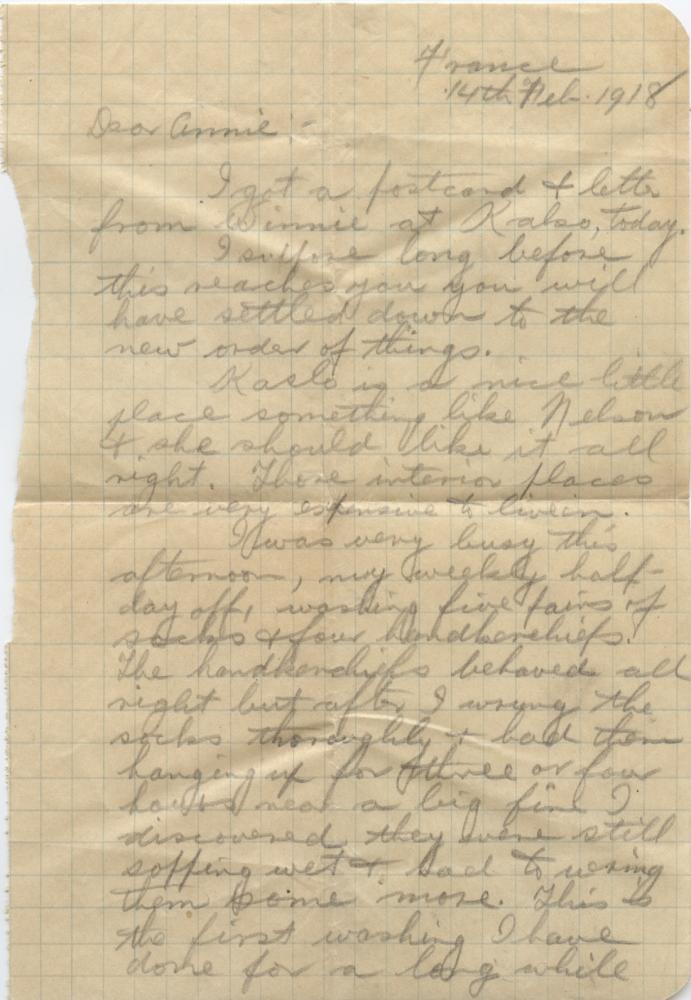 France
14th Feb. 1918
Dear Annie :-
I got a postcard & letter
from Winnie at Kalso, today.
I suppose long before
this reaches you you will
have settled down to the
new order of things.
Kaslo is a nice little
place something like Nelson
& she should like it all
right. Those interior places
are very expensive to live in.
I was very busy this
afternoon, my weekly half-
day off, washing five pairs of
socks & four handkerchiefs.
The handkerchiefs behaved all
right but after I wrung the
socks thoroughly & had them
hanging up for three or four
hours near a big fire I
discovered they were still
sopping wet & had to wring
them some more. This is
the first washing I have
done for a long while